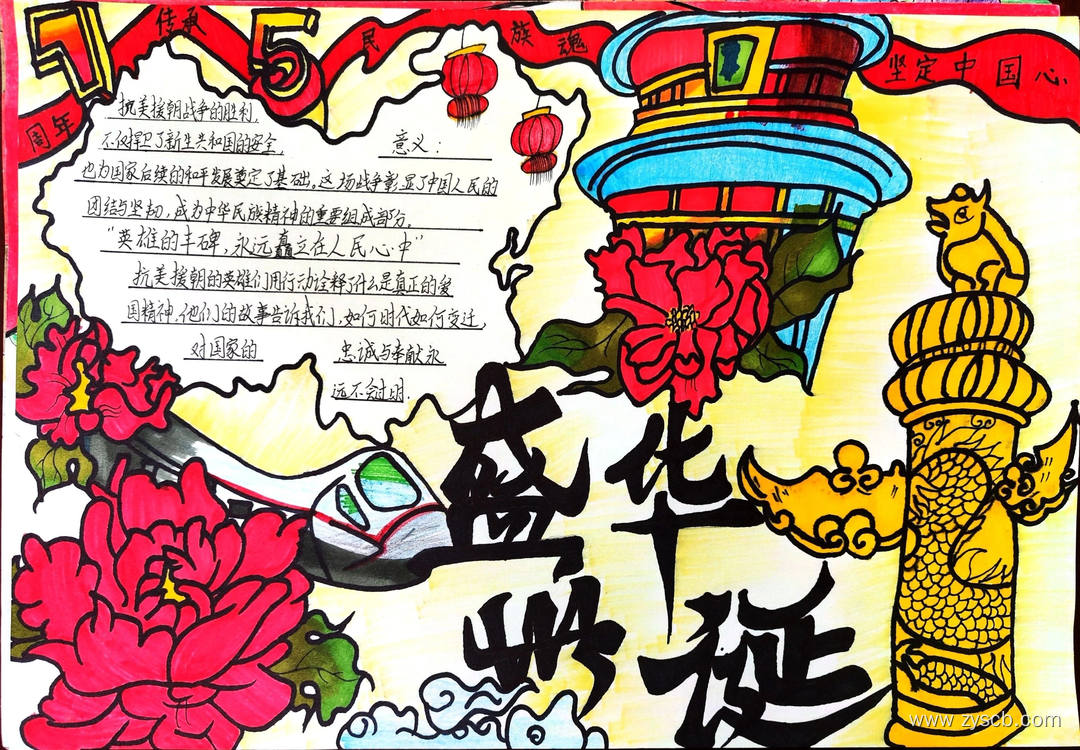 75
周年
传承
民
族魂
坚定中国心
抗美援朝战争的胜利,
不仅捍卫了新生共和国的安全,
意义:
也为国家后续的和平发展奠定了基础。这场战争彰显了中国人民的
团结与坚韧,成为中华民族精神的重要组成部分。
“英雄的丰碑,永远矗立在人民心中”
抗美援朝的英雄们用行动诠释了什么是真正的爱
国精神.他们的故事告诉我们,如何时代如何变迁,
对国家的
忠诚与奉献永
远不会
盛华
诞
www.zyscb.com